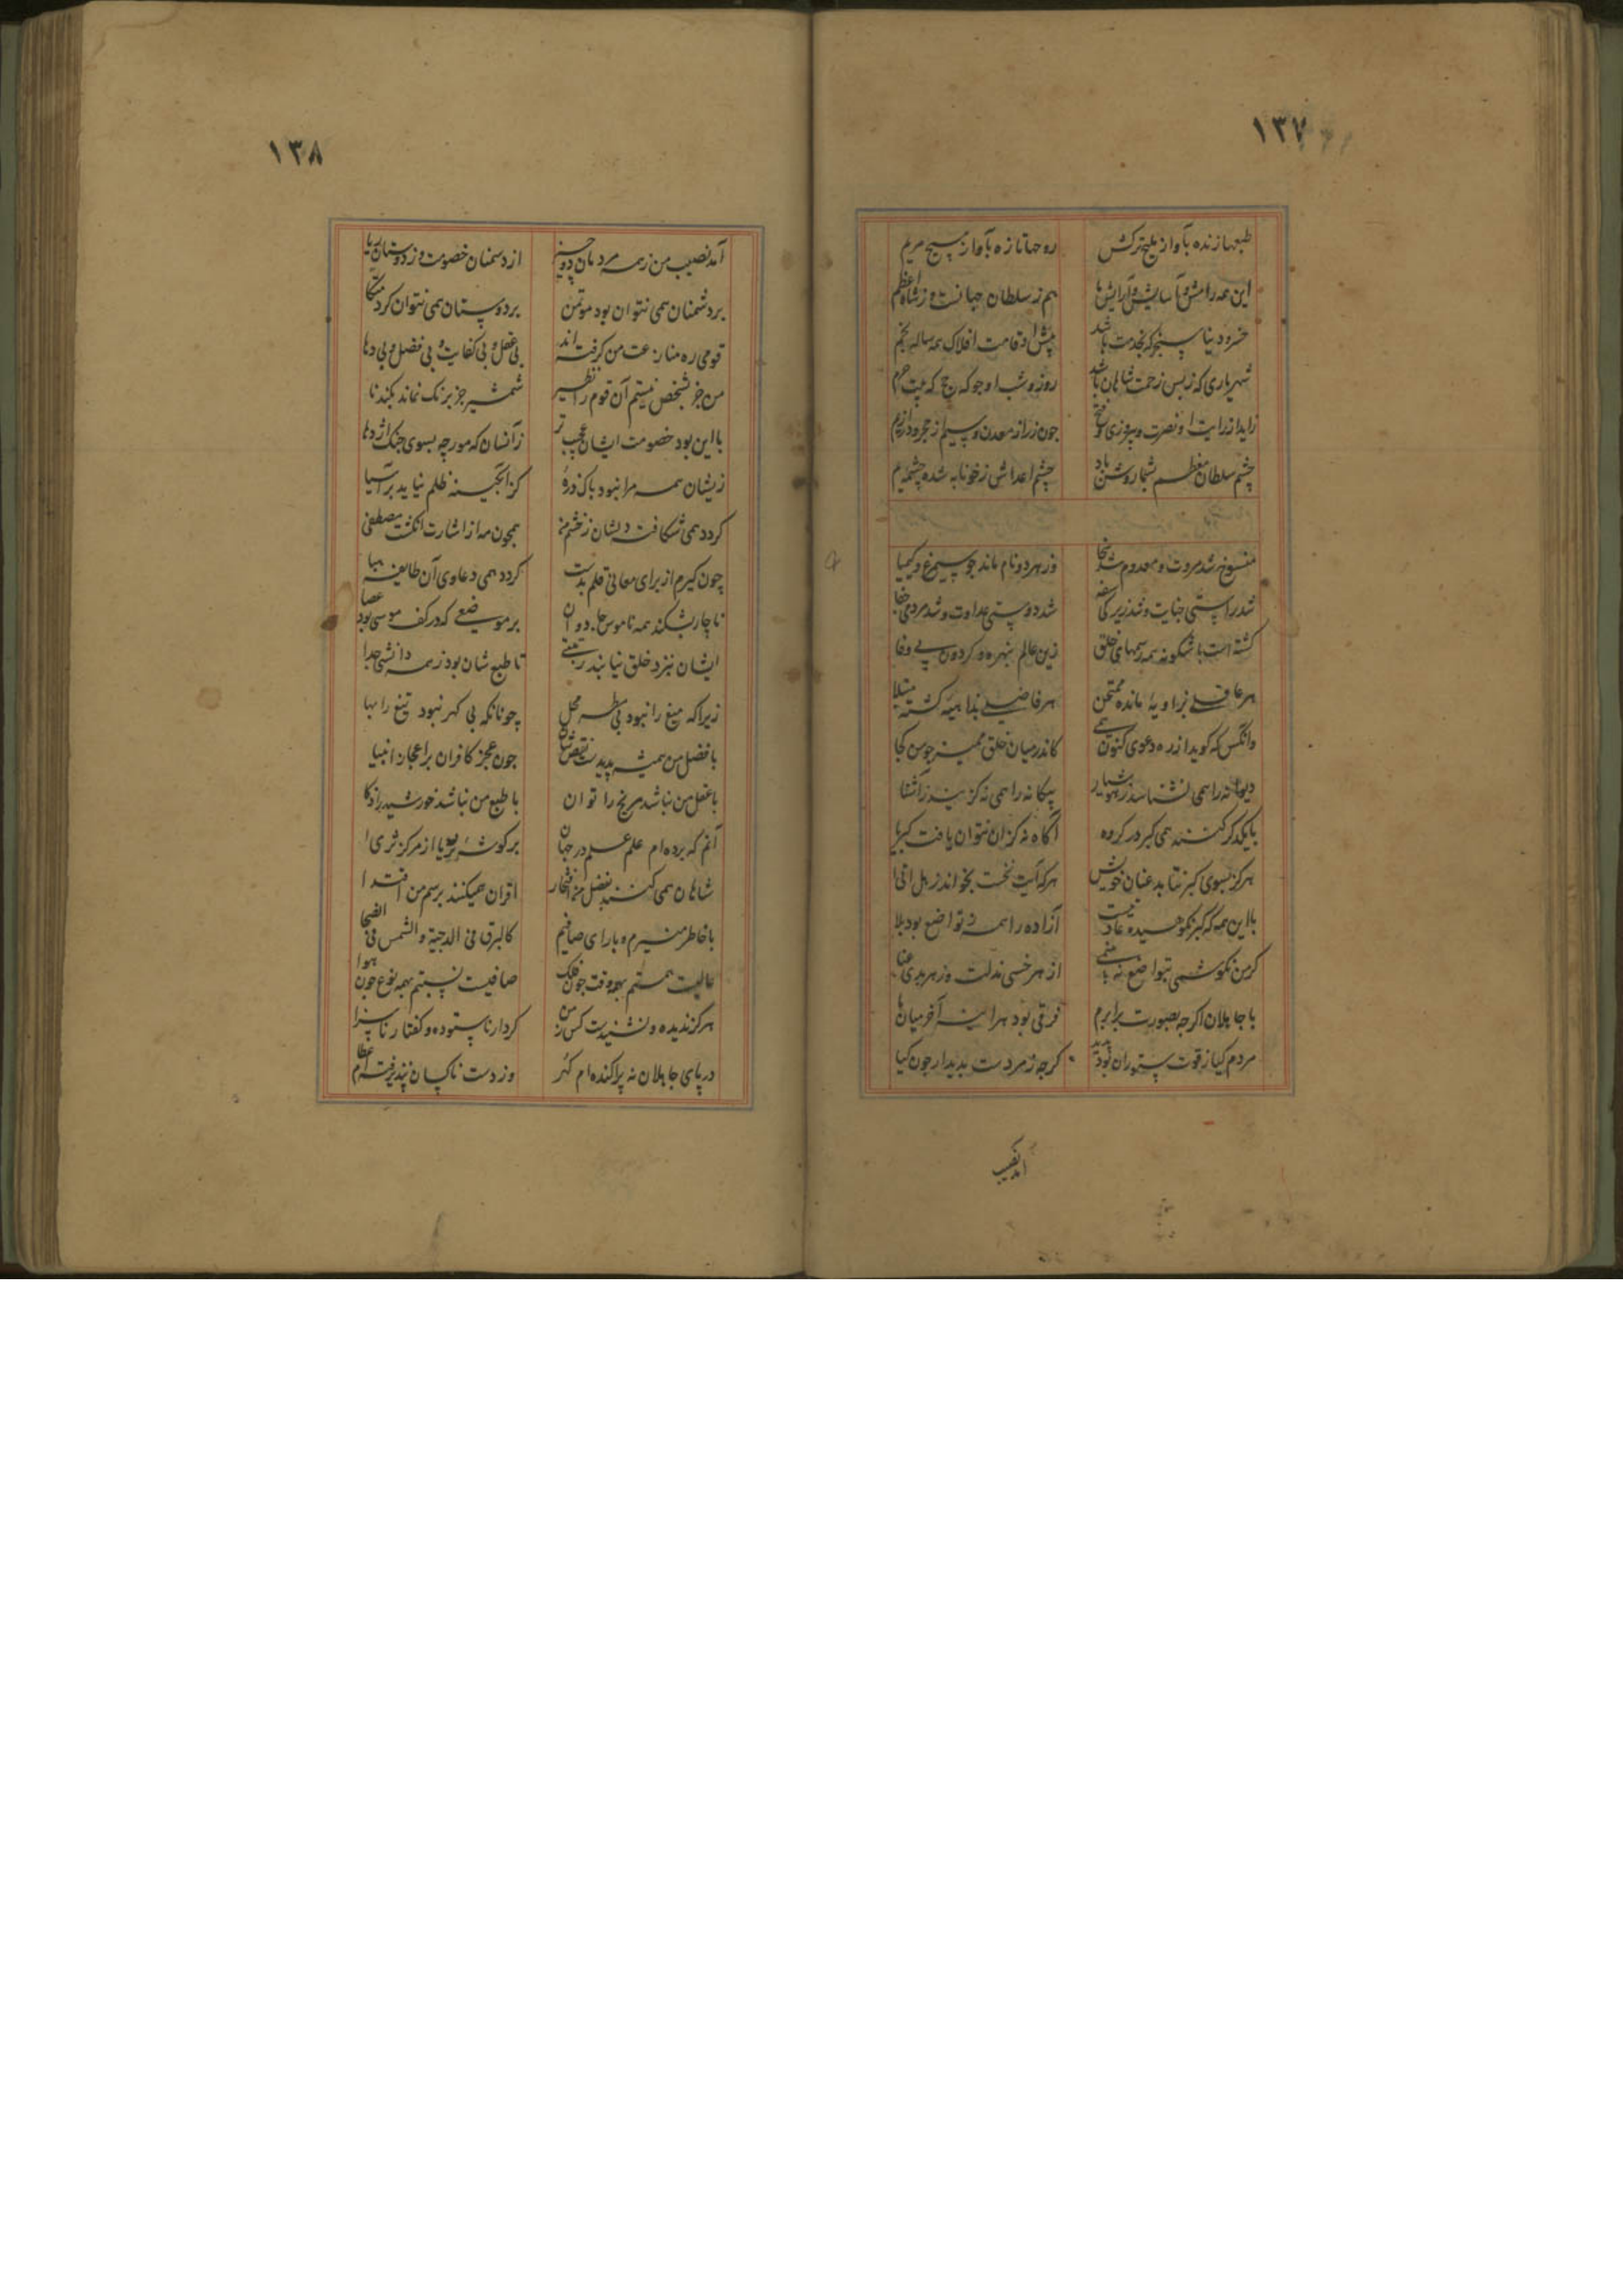 ۱۳۷
طبعها زنده بآواز ملیح ترکش روحها تازه بآواز مسیح مریم
این همه رامش و آسایش و آرایش ها هم ز سلطان جهانست و ز شاه اعظم
خسرو دنیا سنجر که بخدمت باشد پیش او قامت افلاک همه ساله بخم
شهریاری که ز بس زحمت شاهان باشد روز و شب او چو که حج که بیت حرم
زاید از رایت او نصرت و پیروزی و فتح چون زر از معدن و سیم از حجر و در از یم
چشم سلطان معظم بشما روشن باد چشم اعداش ز خونابه شده چشمه یم
منسوخ شد مروت و معدوم شد وفا وز هر دو نام ماند چو سیمرغ و کیمیا
شد راستی خیانت و شد زیرکی سفه شد دوستی عداوت و شد مردمی جفا
گشته است باشگونه همه رسمهای خلق زین عالم نبهره و گردون بی وفا
هر عاقلی بزاویهٔ مانده ممتحن هر فاضلی بداهیه گشته مبتلا
وانکس که گوید از ره دعوی کنون همی کاندر میان خلق ممیز چو من کجا
دیوانه را همی نشناسد ز هوشیار بیگانه را همی نگزیند ز آشنا
بایکدگر کنند همی کبر در گروه آگاه نه کزان نتوان یافت کبریا
هرگز بسوی کبر نتابد عنان خویش هر که آیت نخست بخواند ز هل اتی
با این همه که کبر نکوهیده عادتست آزاده را همه ز تواضع بود بلا
گر من نکوشمی بتواضع نه بینمی از هر خسی مذلت وز هر بدی عنا
با جاهلان اگرچه بصورت برابرم فرقی بود هرآینه آخر میان ما
مردم گیا ز قوت ستوران بود پدید گرچه ز مردمست بدیدار چون گیا
آمد نصیب
۱۳۸
آمد نصیب من ز همه مردمان دو چیز از دشمنان خصومت وز دوستان ریا
بر دشمنان همی نتوان بود موتمن بر دوستان همی نتوان کرد متکا
قومی ره منازعت من گرفته اند بی عقل و بی کفایت و بی فضل و بی دها
من جز بشخص نیستم آن قوم را نظیر شمشیر جز برنگ نماند بگندنا
با این بود خصومت ایشان عجب تر زانسان که مورچه بسوی جنگ اژدها
زیشان همه مرا نبود باک ذرهٔ کز آبگینه ظلم نیاید بر آسیا
گردد همی شکافته دلشان ز خشم من همچون مه از اشارت انگشت مصطفی
چون گیرم از برای معانی قلم بدست گردد همی دعاوی آن طایفه هبا
ناچار بشکند همه ناموس جادوان بر موضعی که در کف موسی بود عصا
ایشان بنزد خلق نیابند رتبتی تا طبع شان بود ز همه دانشی جدا
زیرا که میغ را نبود بی مطر محل چونانکه بی گهر نبود تیغ را بها
با فضل من همیشه پدیدست نقص شان چون عجز کافران بر اعجاز انبیا
با عقل من نباشد مریخ را توان با طبع من نباشد خورشید را ذکا
آنم که برده ام علم علم در جهان بر گوشهٔ ثریا از مرکز ثری
شاهان همی کنند بفضل من افتخار اقران همیکنند برسم من اقتدا
با خاطر منیرم و با رای صافیم کالبرق فی الدجیة والشمس فی الضحا
عالیست همتم بهمه وقت چون فلک صافیست نسبتم بهمه نوع چون هوا
هرگز ندیده و نشنیدست کس ز من کردار ناستوده و گفتار ناسزا
در پای جاهلان نه پراکنده ام گهر وز دست ناکسان نپذیرفته ام عطا